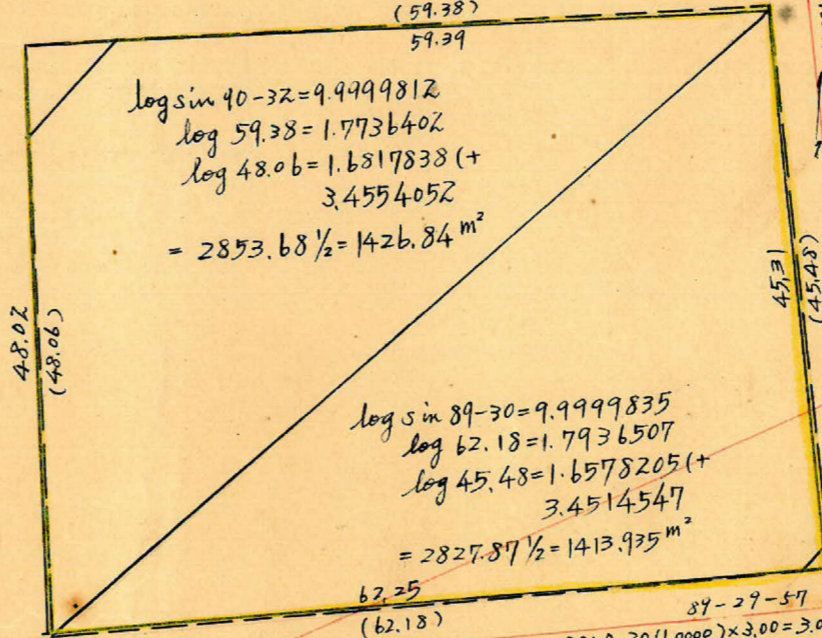 (59.38)
59.39
log sin 90-32=9.9999812
log 59.38=1.7736402
log 48.06=1.6817838(+
3.4554052
= 2853.68 ½=1426.84 m²
48.02
(48.06)
45.31
(45.48)
log sin 89-30=9.9999835
log 62.18=1.7936507
log 45.48=1.6578205(+
3.4514547
= 2827.87 ½=1413.935 m²
62.25
(62.18)
89-29-57
30(1.0000)×3.00=3.0